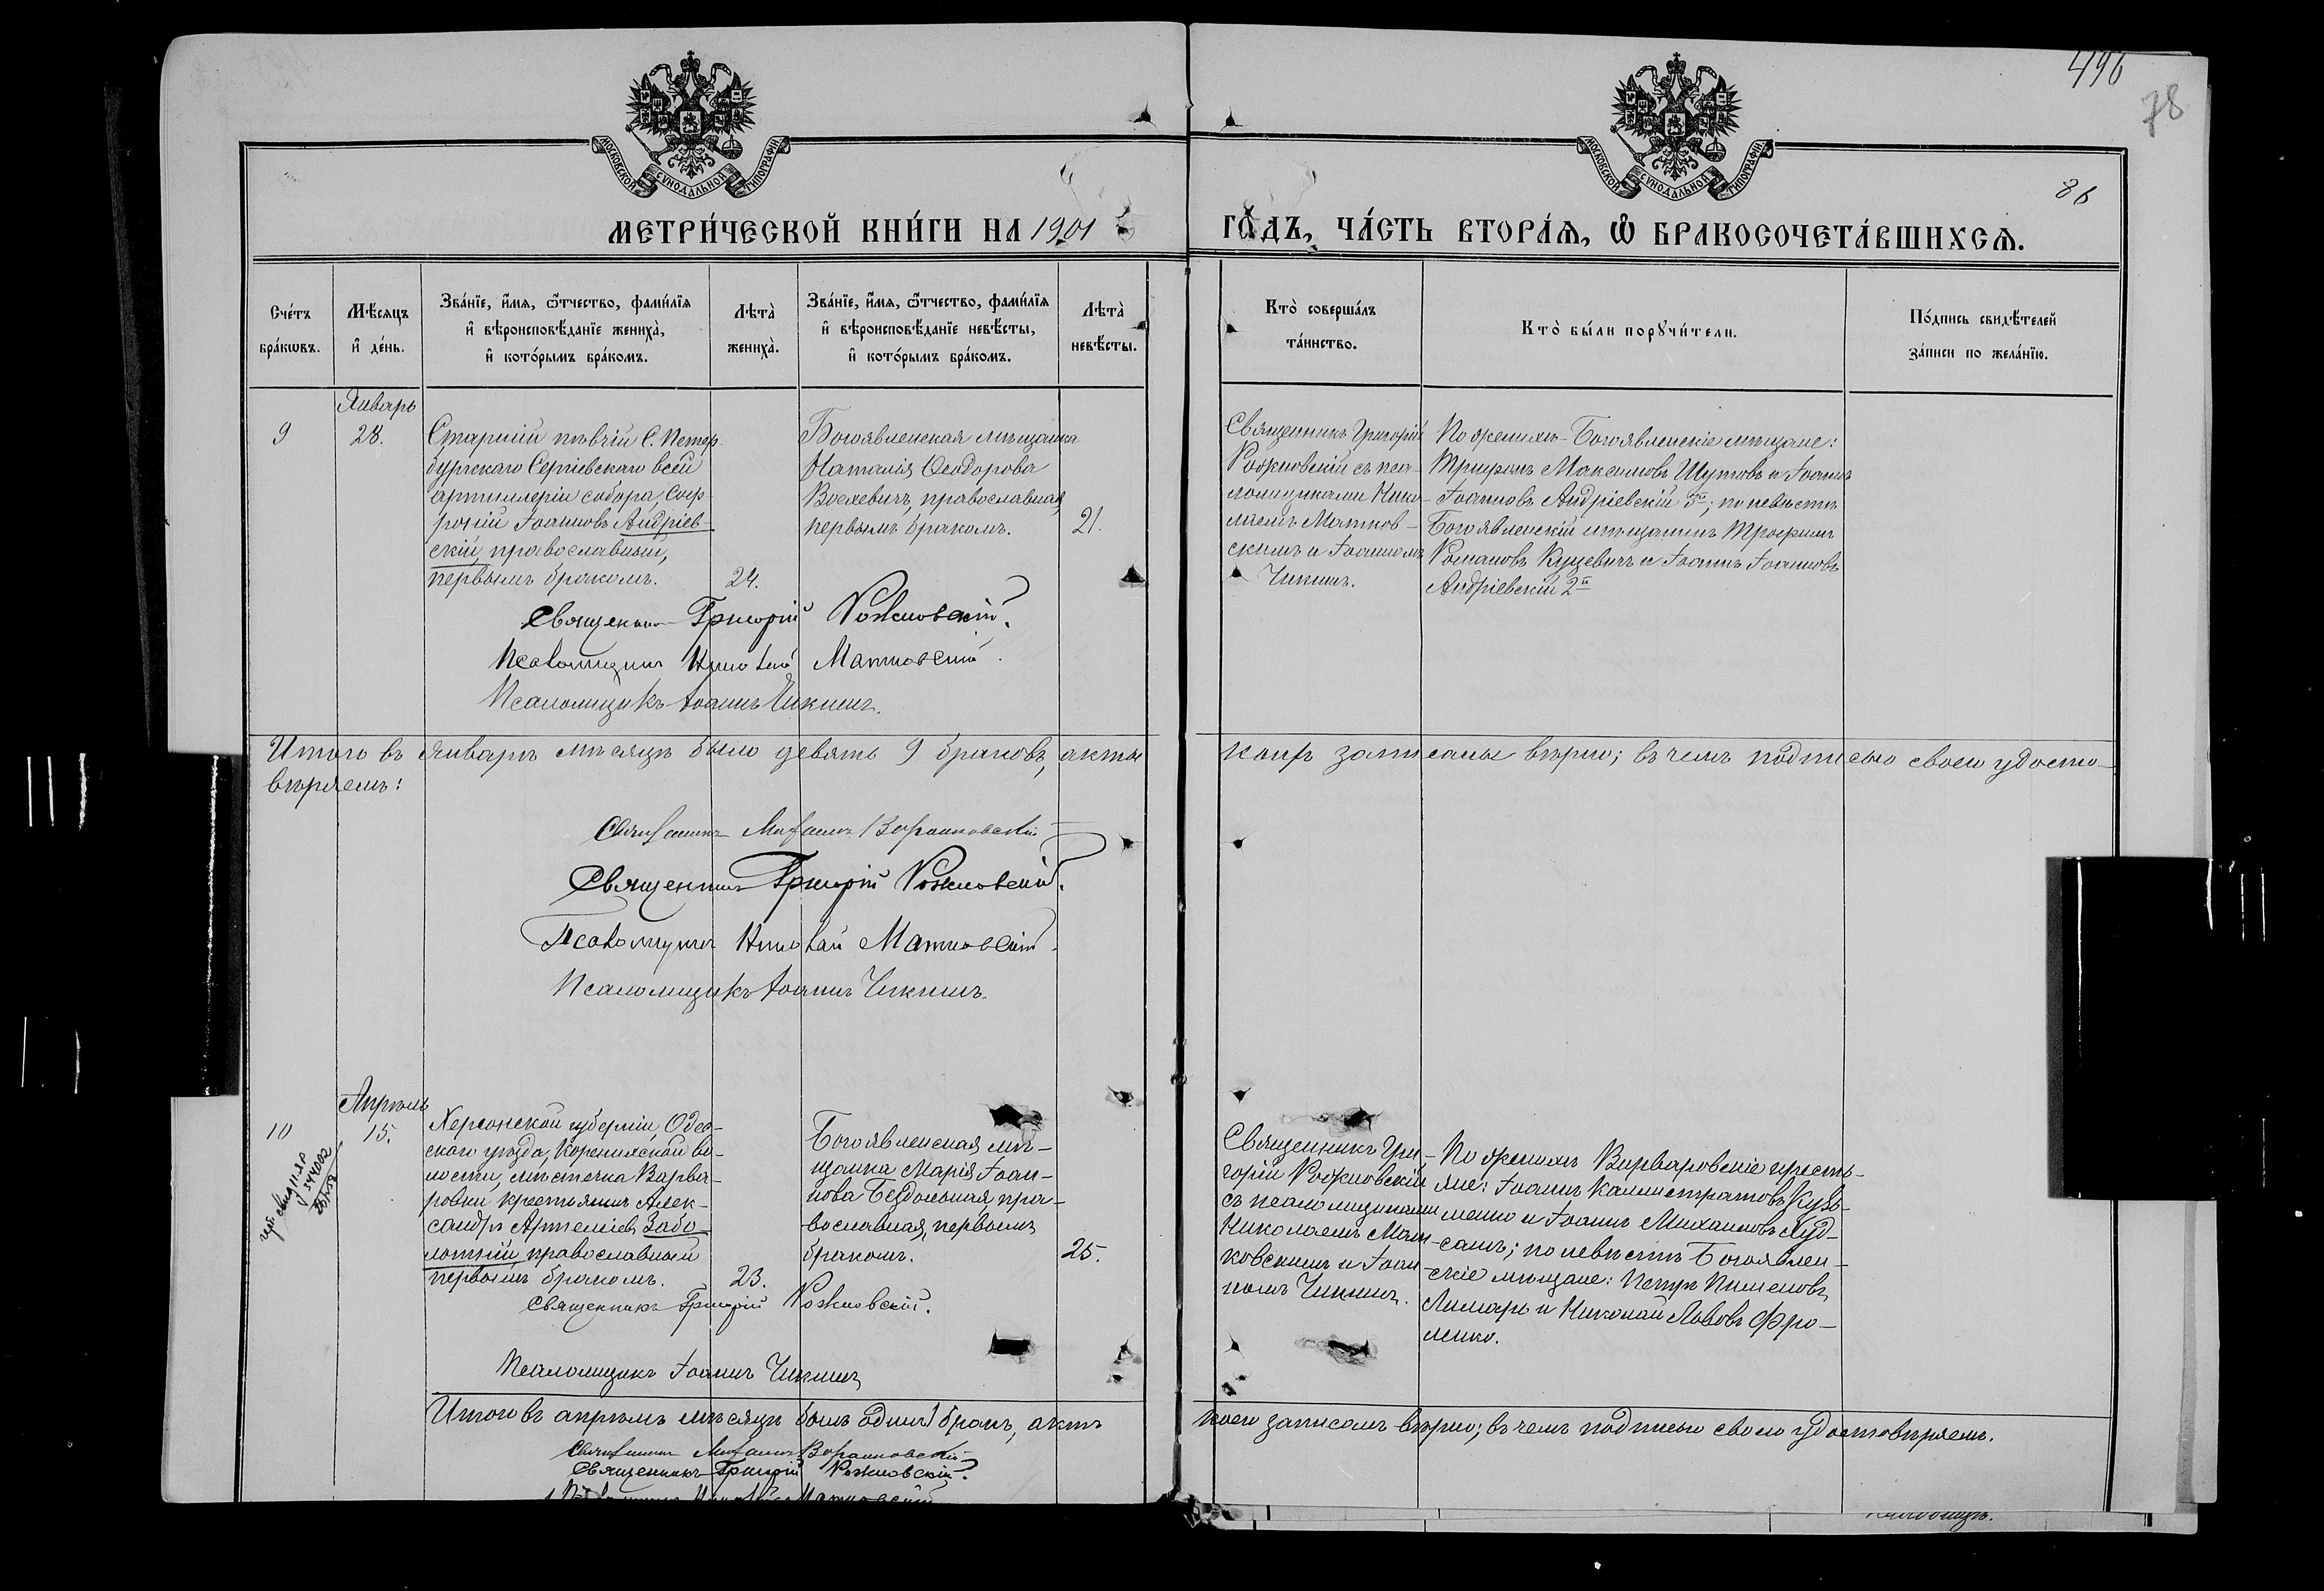 496
78
86
МОСКОВСКОЙ СѴНОДАЛЬНОЙ ТИПОГРАФІИ
МОСКОВСКОЙ СѴНОДАЛЬНОЙ ТИПОГРАФІИ
МЕТРИ́ЧЕСКОЙ КНИ́ГИ НА 1901
ГО́ДЪ, ЧА́СТЬ ВТОРА́Ѧ, Ѽ БРАКОСОЧЕТА́ВШИХСѦ.
Сче́тъ
бра́кωвъ.
Мѣ́сяцъ
и҆ де́нь.
Зва́нїе, и҆́мя, ѻ҆́тчество, фами́лїя
и҆ вѣроисповѣ́данїе жениха̀,
и҆ кото́рымъ бра́комъ.
Лѣта̀
жениха̀.
Зва́нїе, и҆́мя, ѻ҆́тчество, фами́лїя
и҆ вѣроисповѣ́данїе невѣ́сты,
и҆ кото́рымъ бра́комъ.
Лѣта̀
невѣ́сты.
Кто̀ соверша́лъ
та́инство.
Кто̀ бы́ли порꙋчи́тели.
По́дпись свидѣ́телей
за́писи по жела́нїю.
Январь
9
28.
Старшій пѣвчій С. Петер
бургскаго Сергіевскаго всей
артиллеріи собора, Соф
роній Іоанновъ Андріев-
скій, православный,
первымъ бракомъ.
24.
Богоявленская мѣщанка
Наталія Ѳеодорова
Воскевичъ, православная,
первымъ бракомъ.
21.
Священникъ Григорій
Рожновскій съ пса-
ломщиками Нико-
лаемъ Матков-
скимъ и Іоанномъ
Чикишъ.
По женихѣ - Богоявленскіе мѣщане:
Трифонъ Максимовъ Шутовъ и Іоаннъ
Іоанновъ Андріевскій 5й; по невѣстѣ
Богоявленскій мѣщанинъ Трофимъ
Романовъ Куцевичъ и Іоаннъ Іоанновъ
Андріевскій 2й
Священникъ Григорій Рожновскій.
Псаломщикъ Николай Матковскій.
Псаломщикъ Іоаннъ Чикишъ.
Итого въ Январѣ мѣсяцѣ было девять 9 браковъ, акты
коихъ записаны вѣрно; въ чемъ подписью своею удосто-
вѣряемъ:
Священникъ
Священникъ Григорій Рожновскій.
Псаломщикъ Николай Матковскій.
Псаломщикъ Іоаннъ Чикишъ.
Апрѣль
10
15.
Херсонской губерніи, Одес-
скаго уѣзда, Коренихской во-
лости, мѣстечка Варва-
ровки крестьянинъ Алек-
сандръ Артеміевъ Забо-
лотній православный
первымъ бракомъ.
23.
Богоявленская мѣ-
щанка Марія Іоан-
нова Бездольная пра-
вославная, первымъ
бракомъ.
25.
Священникъ Гри-
горій Рожновскій
съ псаломщиками
Николаемъ Мат-
ковскимъ и Іоан-
номъ Чикишъ.
По женихѣ Варваровскіе кресть-
яне: Іоаннъ Каллистратовъ Кузь-
менко и Іоаннъ Михаиловъ
по невѣстѣ Богоявлен-
скіе мѣщане: Петръ Пименовъ
Лимарь и Николай Львовъ Фро-
менко.
Священникъ Григорій Рожновскій.
Псаломщикъ Іоаннъ Чикишъ
Итого въ апрѣлѣ мѣсяцѣ былъ одинъ 1 бракъ, актъ
коего записанъ вѣрно; въ чемъ подписью своею удостовѣряемъ.
Священникъ
Священникъ Григорій Рожновскій.